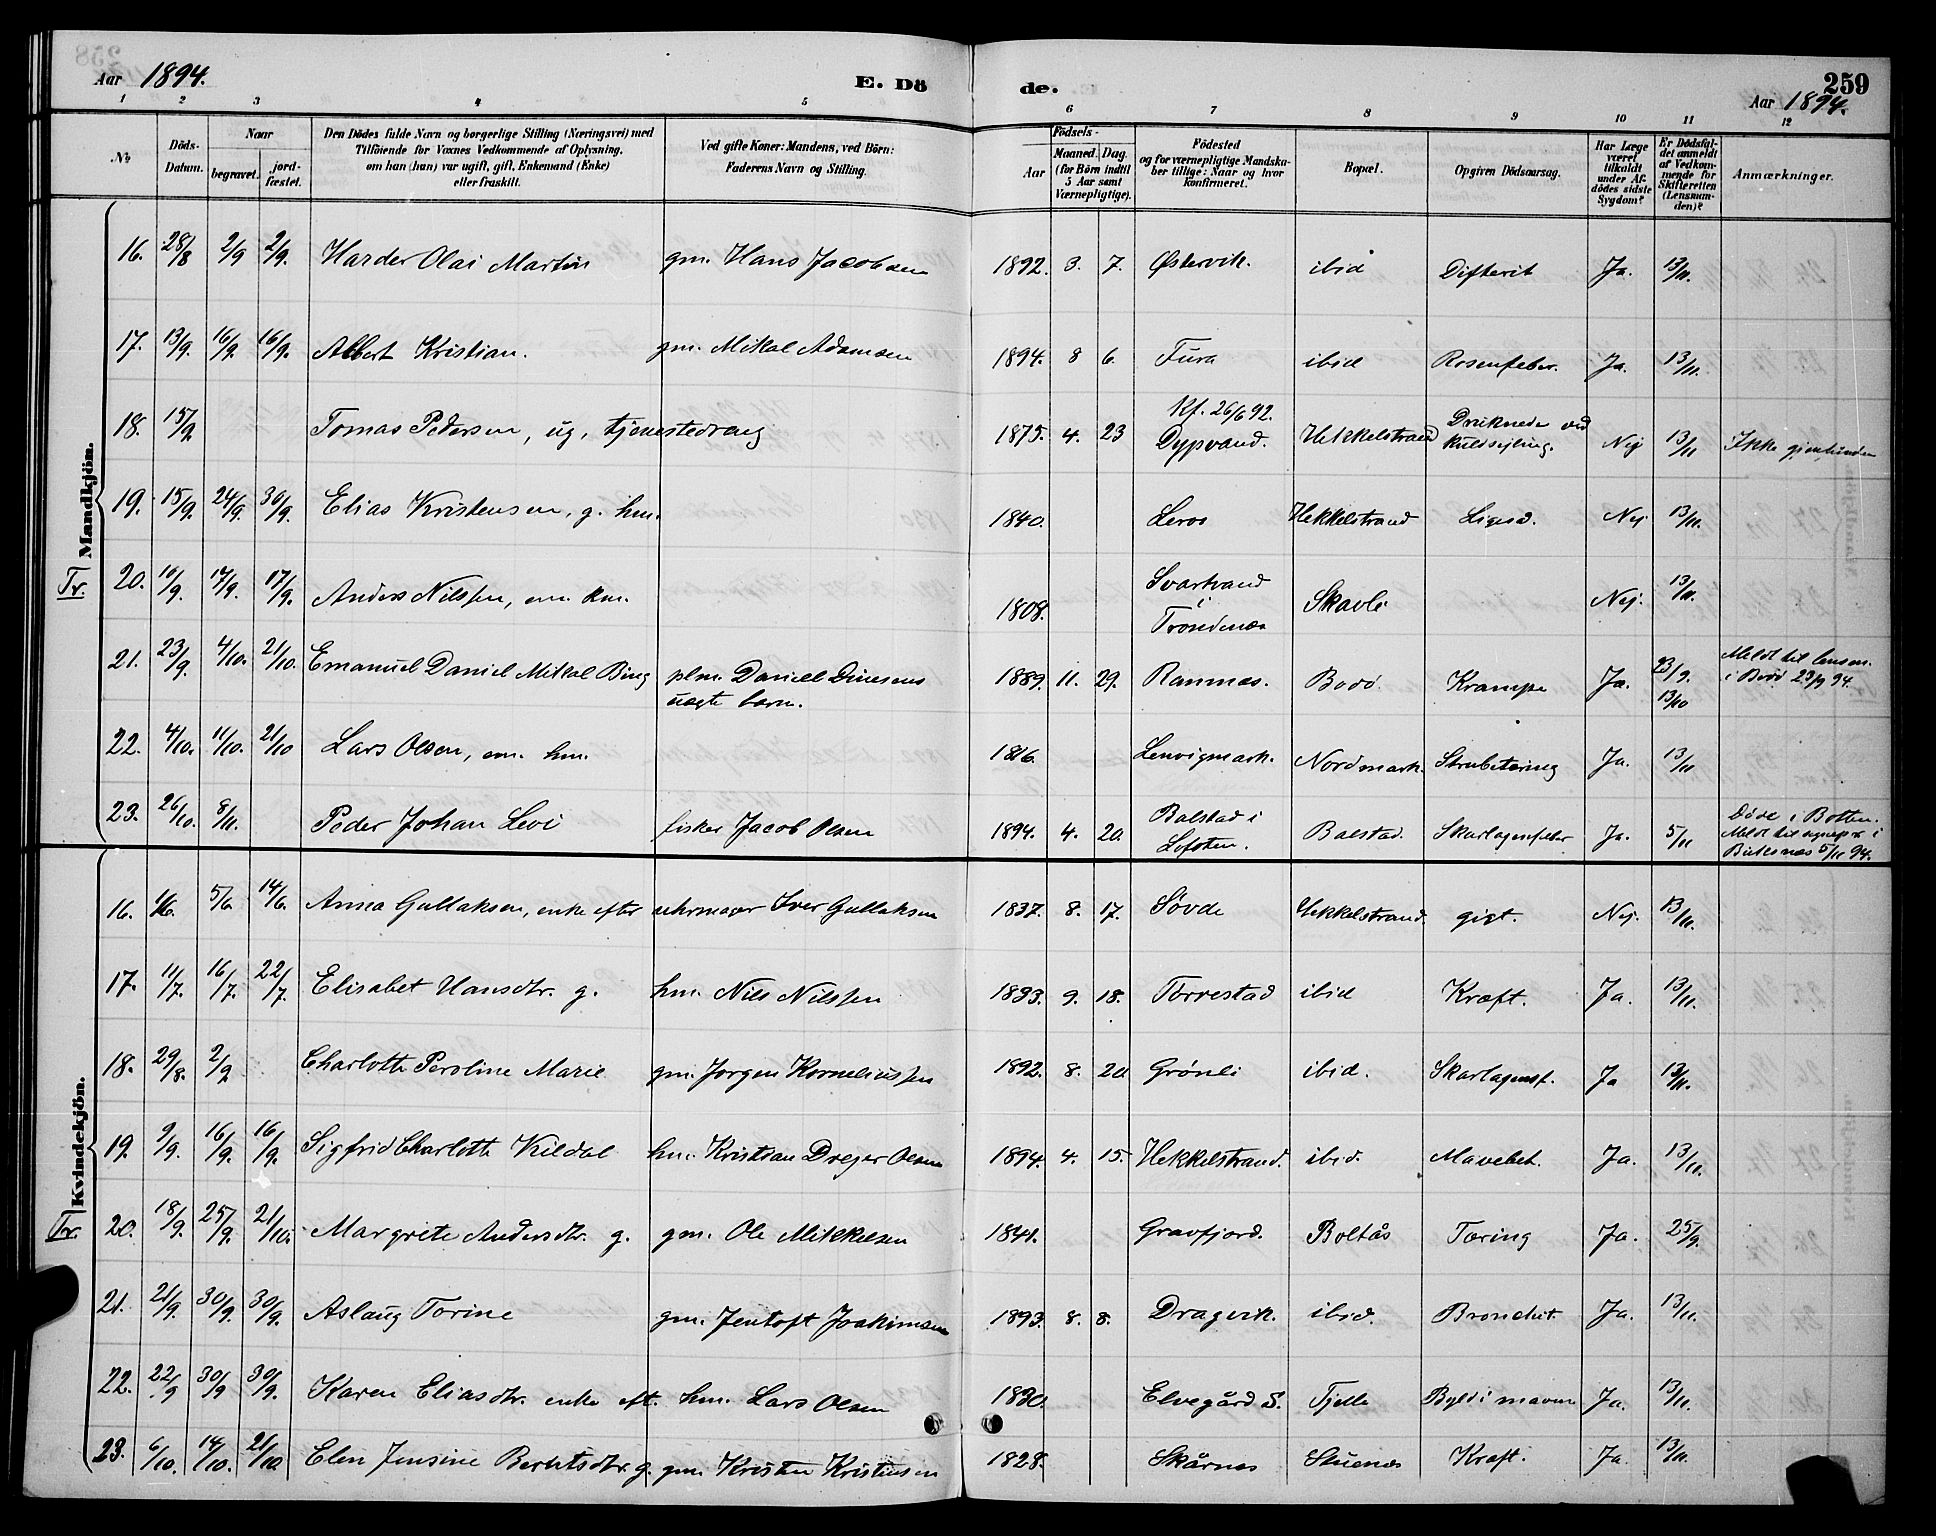 Aar 1894.
E. Dö
de.
259
Aar 1894.
1 2 3 4 5 6 7 8 9 10 11 12
No
Döds-Datum.
Naar
begravet.
jord-fæstet.
Den Dödes fulde Navn og borgerlige Stilling (Næringsvei) med
Tilföiende for Voxnes Vedkommende af Oplysning,
om han (hun) var ugift, gift, Enkemand (Enke)
eller fraskilt.
Ved gifte Koner: Mandens, ved Börn:
Faderens Navn og Stilling.
Födsels-
Aar
Maaned. Dag.
(for Börn indtil
5 Aar samt
Værnepligtige).
Födested
og for værnepligtige Mandska-
ber tillige: Naar og hvor
konfirmeret.
Bopæl.
Opgiven Dödsaarsag.
Har Læge
været
tilkaldt
under Af-
dödes sidste
Sygdom?
Er Dödsfal-
det anmeldt
af Vedkom-
mende for
Skifteretten
(Lensman-
den)?
Anmærkninger.
Mandkjön.
16. 28/8 2/9 2/9. Harder Olai Martin gm. Hans Jacobsen 1892. 3. 7. Østervik. ibid Difterit Ja. 13/11.
17. 13/9. 16/9. 16/9. Albert Kristian. gm. Mikal Adamsen 1894. 8 6. Fura ibid Rosenfeber. Ja. 13/11.
18. 15/9 Tomas Pedersen, ug, tjenestedreng 1875. 4. 23 Kf. 26/6 92. Dypvand. Hekkelstrand Druknede ved kuldsejling. Nej 13/11 Ikke gjenfunden
19. 15/9. 24/9. 30/9. Elias Kristensen, g. hm. 1840. Leros Hekkelstrand Ligesd. Nej 13/11.
Tr. 20. 10/9. 17/9. 17/9. Anders Nilssen, em. km. 1808. Svartvand i Trondenæs Skavli Nej. 13/11.
21. 23/9. 4/10. 21/10. Emanuel Daniel Mikal Bing plm. Daniel Dinesens uægte barn. 1889. 11. 29. Ranmas. Bodø. Krampe Ja. 23/9. 13/10 Meldt til lensm. i Bodø 23/9 94.
22. 4/10. 11/10. 21/10 Lars Olsen, em. hm. 1816. Lenvigmark. Nordmark. Strubetæring Ja. 13/11
23. 26/10. 8/11. Peder Johan Levi fisker Jacob Olsen 1894. 4. 20. Balstad i Lofoten. Balstad. Skarlagensfeber Ja. 5/11 Døde i Botten. Meldt til i Buksnæs 5/11 94.
Kvindekjön.
16. 1/6. 5/6. 14/6. Anna Gullaksen, enke efter uhrmager Iver Gullaksen 1837. 8. 17. Søvde Hekkelstrand. gigt. Nej. 13/11.
17. 11/7. 16/7. 22/7. Elisabet Hansdtr. g. hm. Nils Nilssen 1833. 9. 18. Tørrestad ibid Kræft. Ja. 13/11.
18. 29/8. 2/9 Charlotte Peroline Marie gm. Jørgen Korneliussen 1892. 8. 20 Grønli ibid. Skarlagensf. Ja 13/11.
19. 9/9. 16/9. 16/9. Sigfrid Charlotte Kildal hm. Kristian Drejer Olsen 1894. 4. 15. Hekkelstrand. ibid. Mavebet. Ja. 13/11.
Tr. 20. 18/9. 25/9. 21/10. Margrete Andersdtr. g. gm. Ole Mikkelsen 1841. Gravfjord. Boltås Tæring Ja. 25/9.
21. 21/9. 30/9. 30/9. Aslaug Torine gm. Jentoft Joakimsen 1893. 8. 8. Dragvik. ibid. Bronchit. Ja. 13/11.
22. 22/9 30/9 30/9. Karen Eliasdtr. enke eft. hm. Lars Olsen 1830. Elvegård S. Fjelle Byld i maven Ja. 13/11.
23. 6/10. 14/10. 21/10 Elen Jensine Berntsdtr. g. gm. Kristen Kristensen 1828. Skårnes Stuenes Kræft. Ja. 13/11.